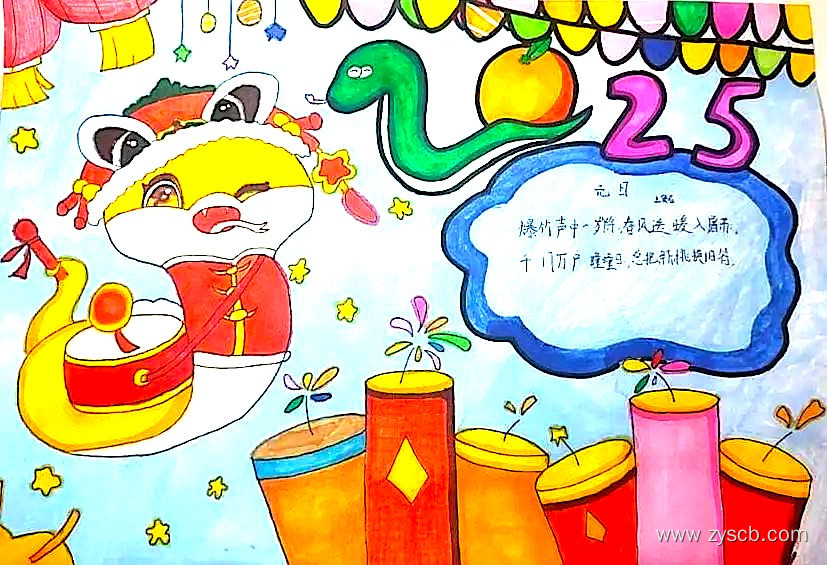 2025
元日
王安石
爆竹声中一岁除,春风送暖入屠苏。
千门万户曈曈日,总把新桃换旧符。
www.zyscb.com